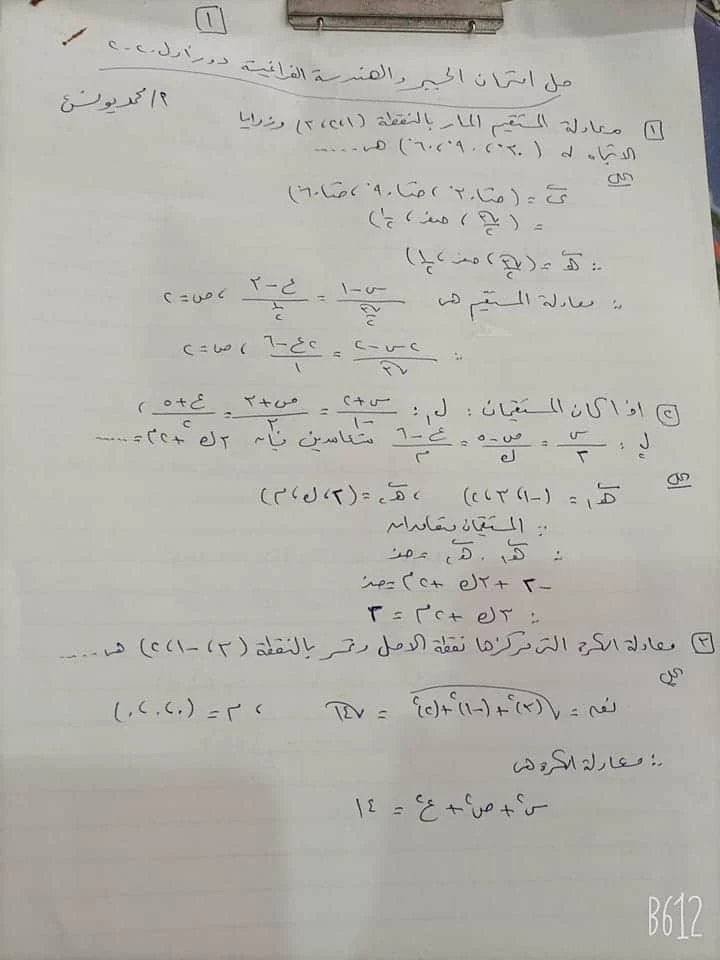 ١
حل امتحان الجبر والهندسة الفراغية دور أول ٢٠٢٠
٢/محمد يونس
١ معادلة المستقيم المار بالنقطة (١،٢،٣) وزوايا
الاتجاه له (٣٠°، ٩٠°، ٦٠°) هى .....
الحل
ىَ = (حتا٣٠، حتا٩٠، حتا٦٠)
= (√٣/٢، صفر، ١/٢)
∴ هـَ = (√٣/٢، صفر، ١/٢)
∴ معادلة المستقيم هى (س-١)/(√٣/٢) = (ع-٣)/(١/٢) ، ص=٢
∴ (٢س-٢)/√٣ = (٢ع-٦)/١ ، ص=٢
٢ اذا كان المستقيمان : ل١ : (س+٢)/-١ = (ص+٢)/٣ = (ع+٥)/٢ ،
ل٢ : س/٣ = (ص-٥)/ك = (ع-٦)/م متعامدين فإن ٣ك+٢م=.....
الحل
هـَ١ = (-١،٣،٢) ، هـَ٢ = (٣،ك،م)
∵ المستقيمان متعامدان
∴ هـَ١ . هـَ٢ = صفر
-٣+٣ك+٢م=صفر
∴ ٣ك+٢م = ٣
٣ معادلة الكرة التى مركزها نقطة الاصل وتمر بالنقطة (٣،-١،٢) هى .....
الحل
نق = √((٣)²+(-١)²+(٢)²) = √١٤ ، م = (٠،٠،٠)
∴ معادلة الكرة هى
س²+ص²+ع² = ١٤
B612